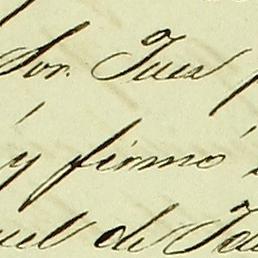 Sor. Juez
y firmó
uel de